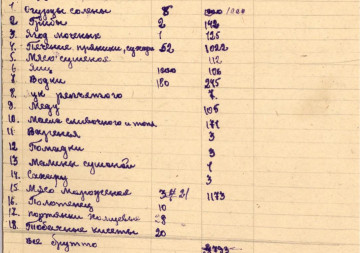 1. Огурцы солены 8
2. Грибы 2 142
3. Ягод моченых 1 125
4. Печение пряники, сухари 52 1022
5. Мясо сушеное 112
6. Яиц 106
7. Водки 180 245
8. Лук репчатого 7
9. Меду 106
10. Масла сливочного и топл. 171
11. Варенья 3
12. Помадки 3
13. Малины сушоной 1
14. Сахару 3
15. Мясо мороженое 1173
16. Полотенец 10
17. портянки холщевые 28
18. Табачные кисеты 20
Все брутто